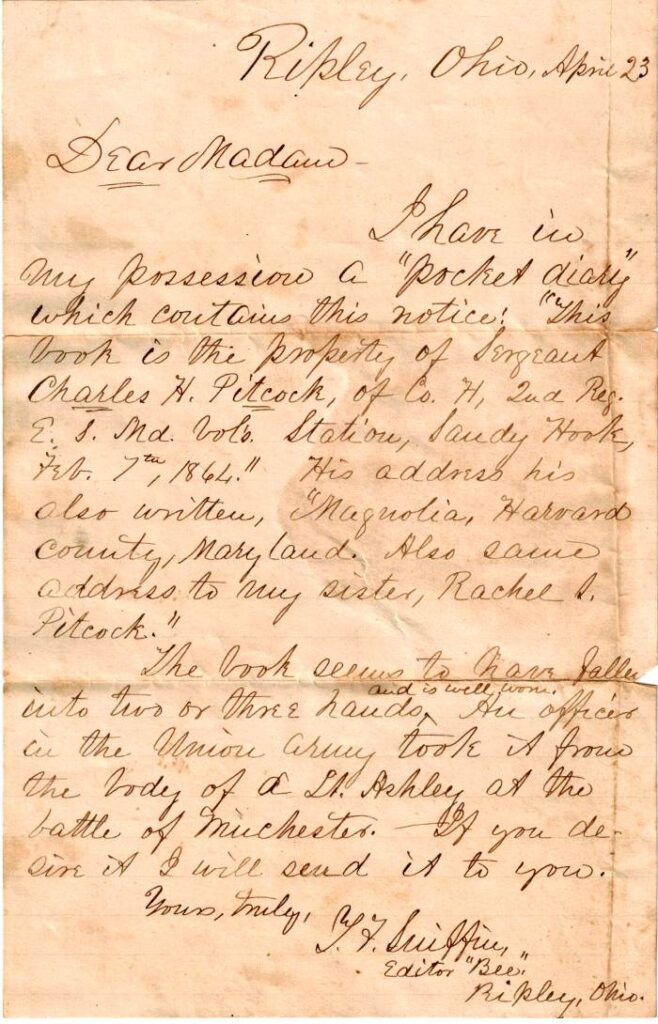 Ripley, Ohio, April 23
Dear Madam -
I have in
my possession a "pocket diary"
which contains this notice: "This
book is the property of Sergeant
Charles H. Pitcock, of Co. H, 2nd Reg.
E. S. Md. Vols. Station, Sandy Hook,
Feb. 7th, 1864." His address his
also written, "Magnolia, Harvard
county, Maryland. Also same
address to my sister, Rachel S.
Pitcock."
The book seems to have fallen
and is well worn.
into two or three hands. An officer
in the Union army took it from
the body of a Lt. Ashley at the
battle of Winchester. - If you de-
sire it I will send it to you.
Yours, truly,
Sniffin,
Editor "Bee."
Ripley, Ohio.